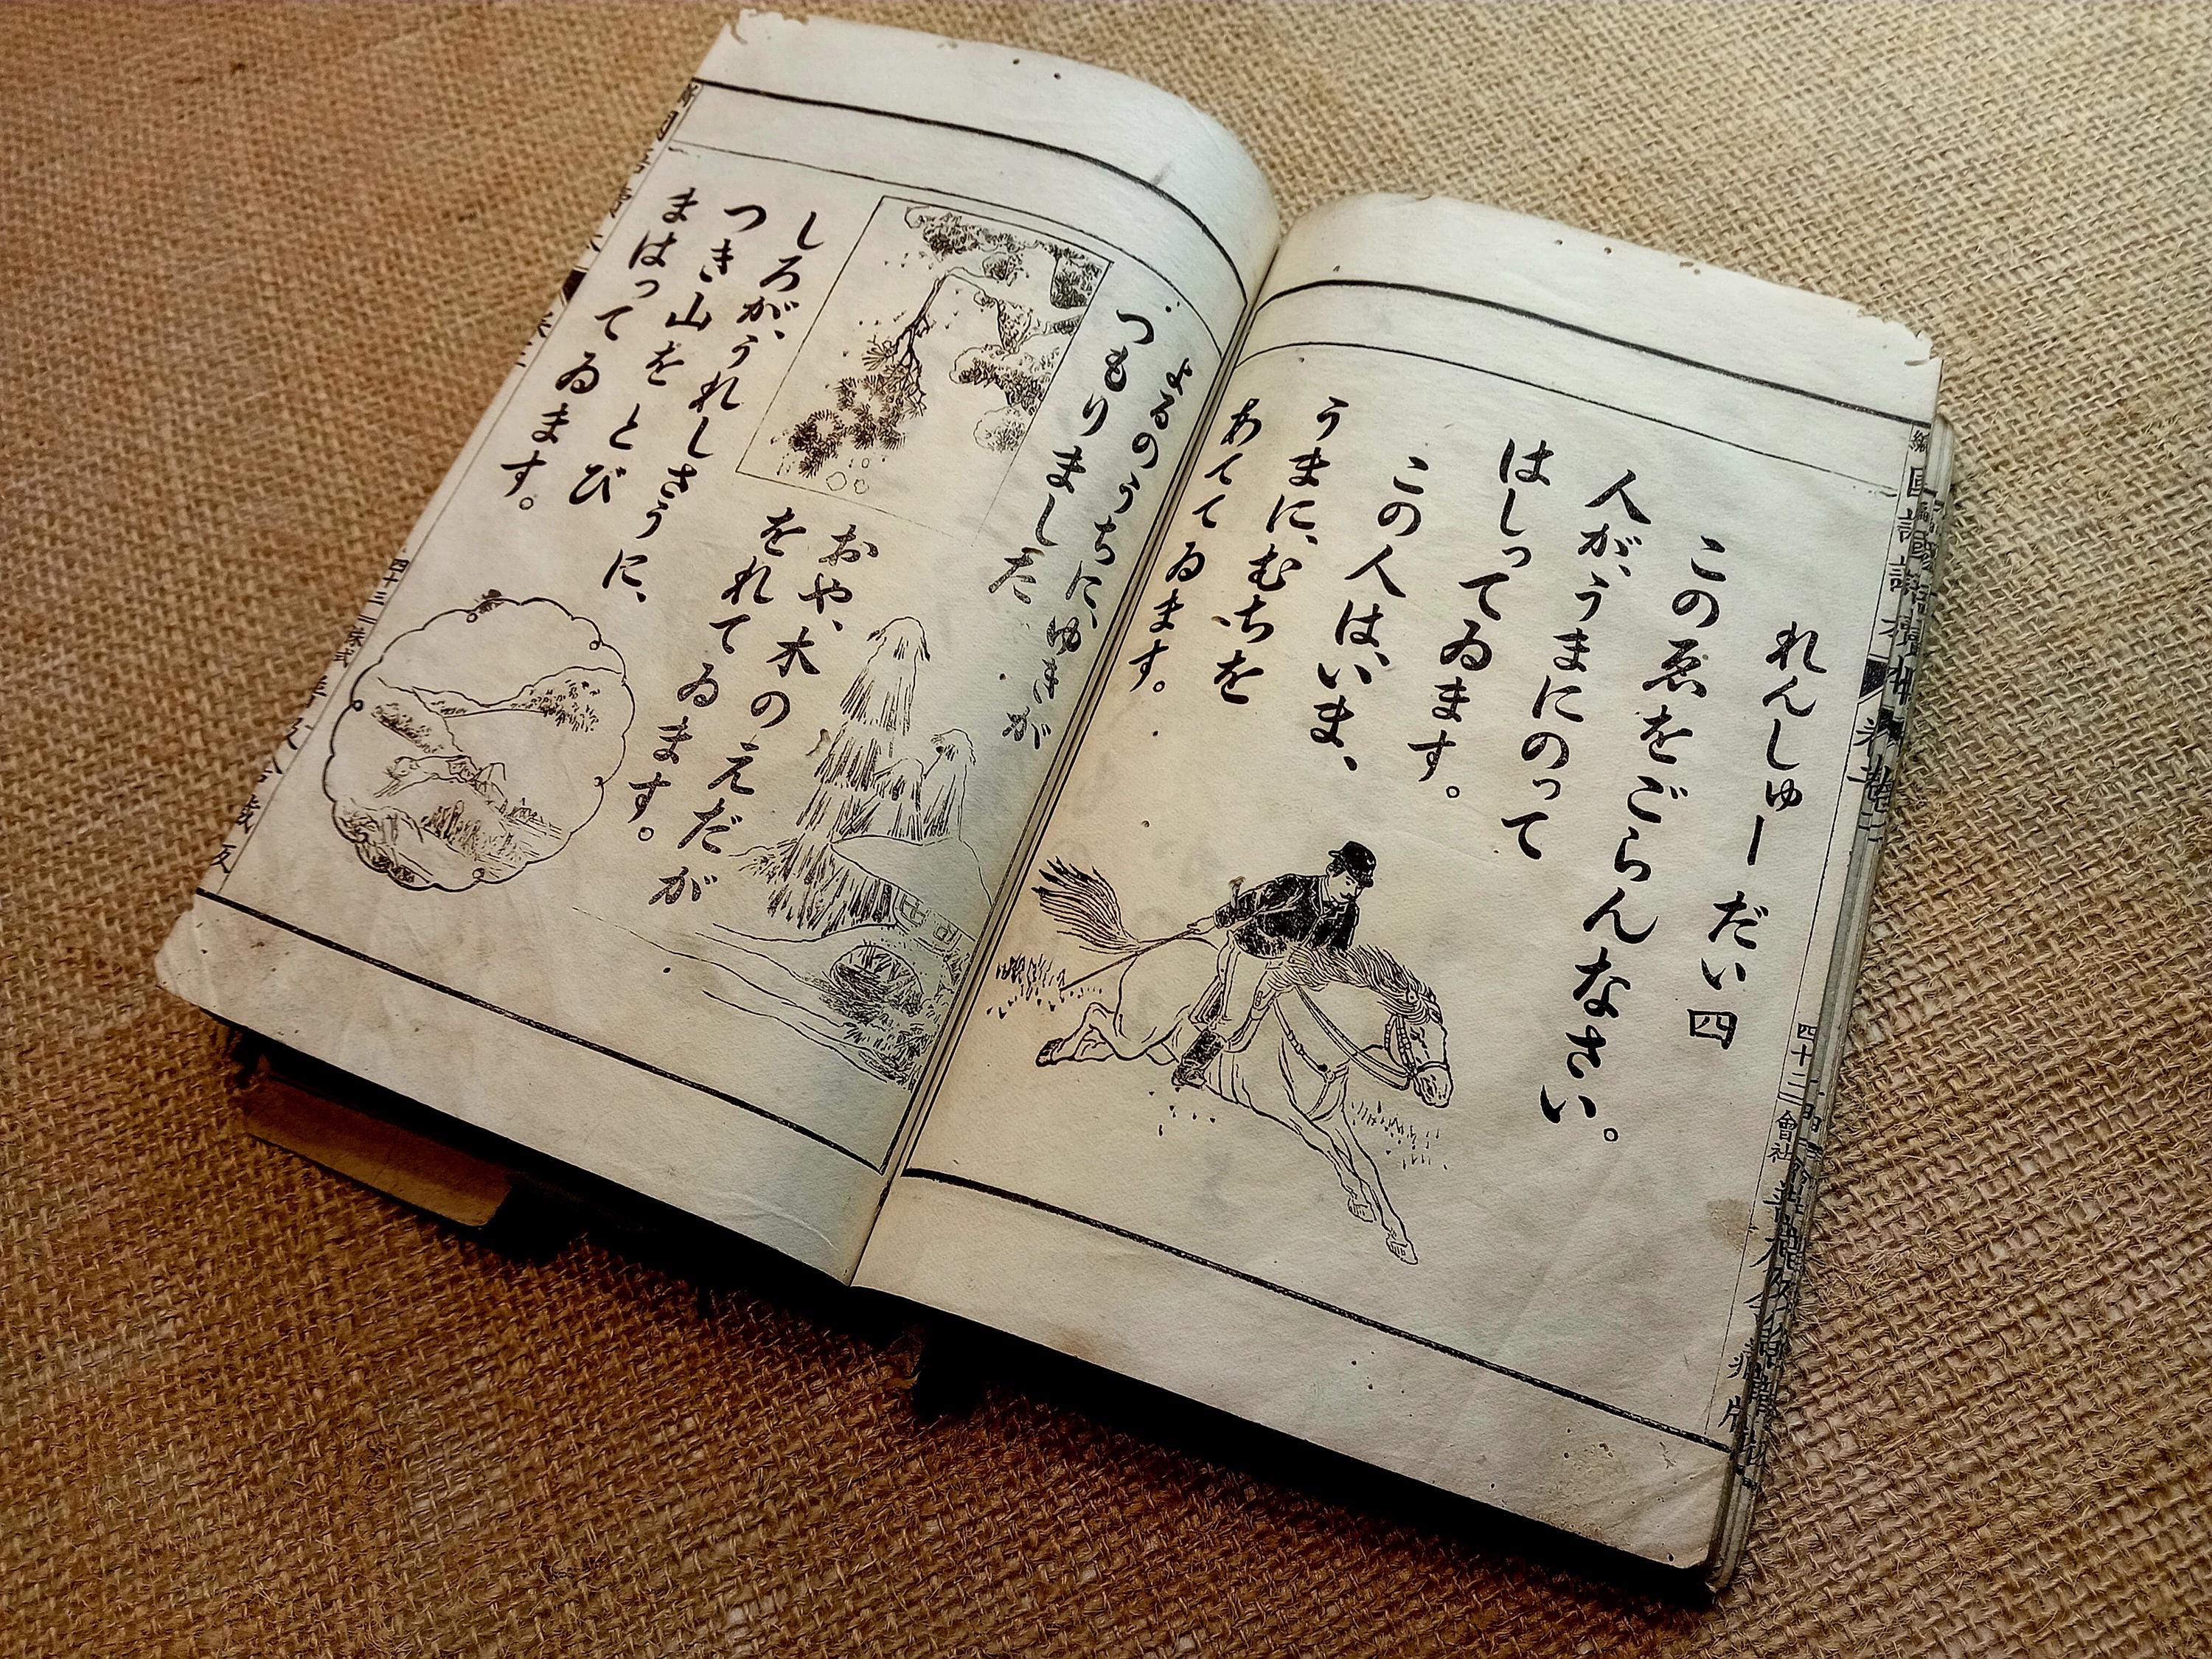 れんしゅー だい四
この ゑを ごらんなさい。
人が、うまにのって
はしってゐます。
この人は、いま、
うまに、むちを
あてゝゐます。
四十二
會社
よるのうちに、ゆきが
つもりました
おや、木のえだが
をれてゐます。
しろが、うれしさうに、
つき山を とび
まはってゐます。
四十三
株式